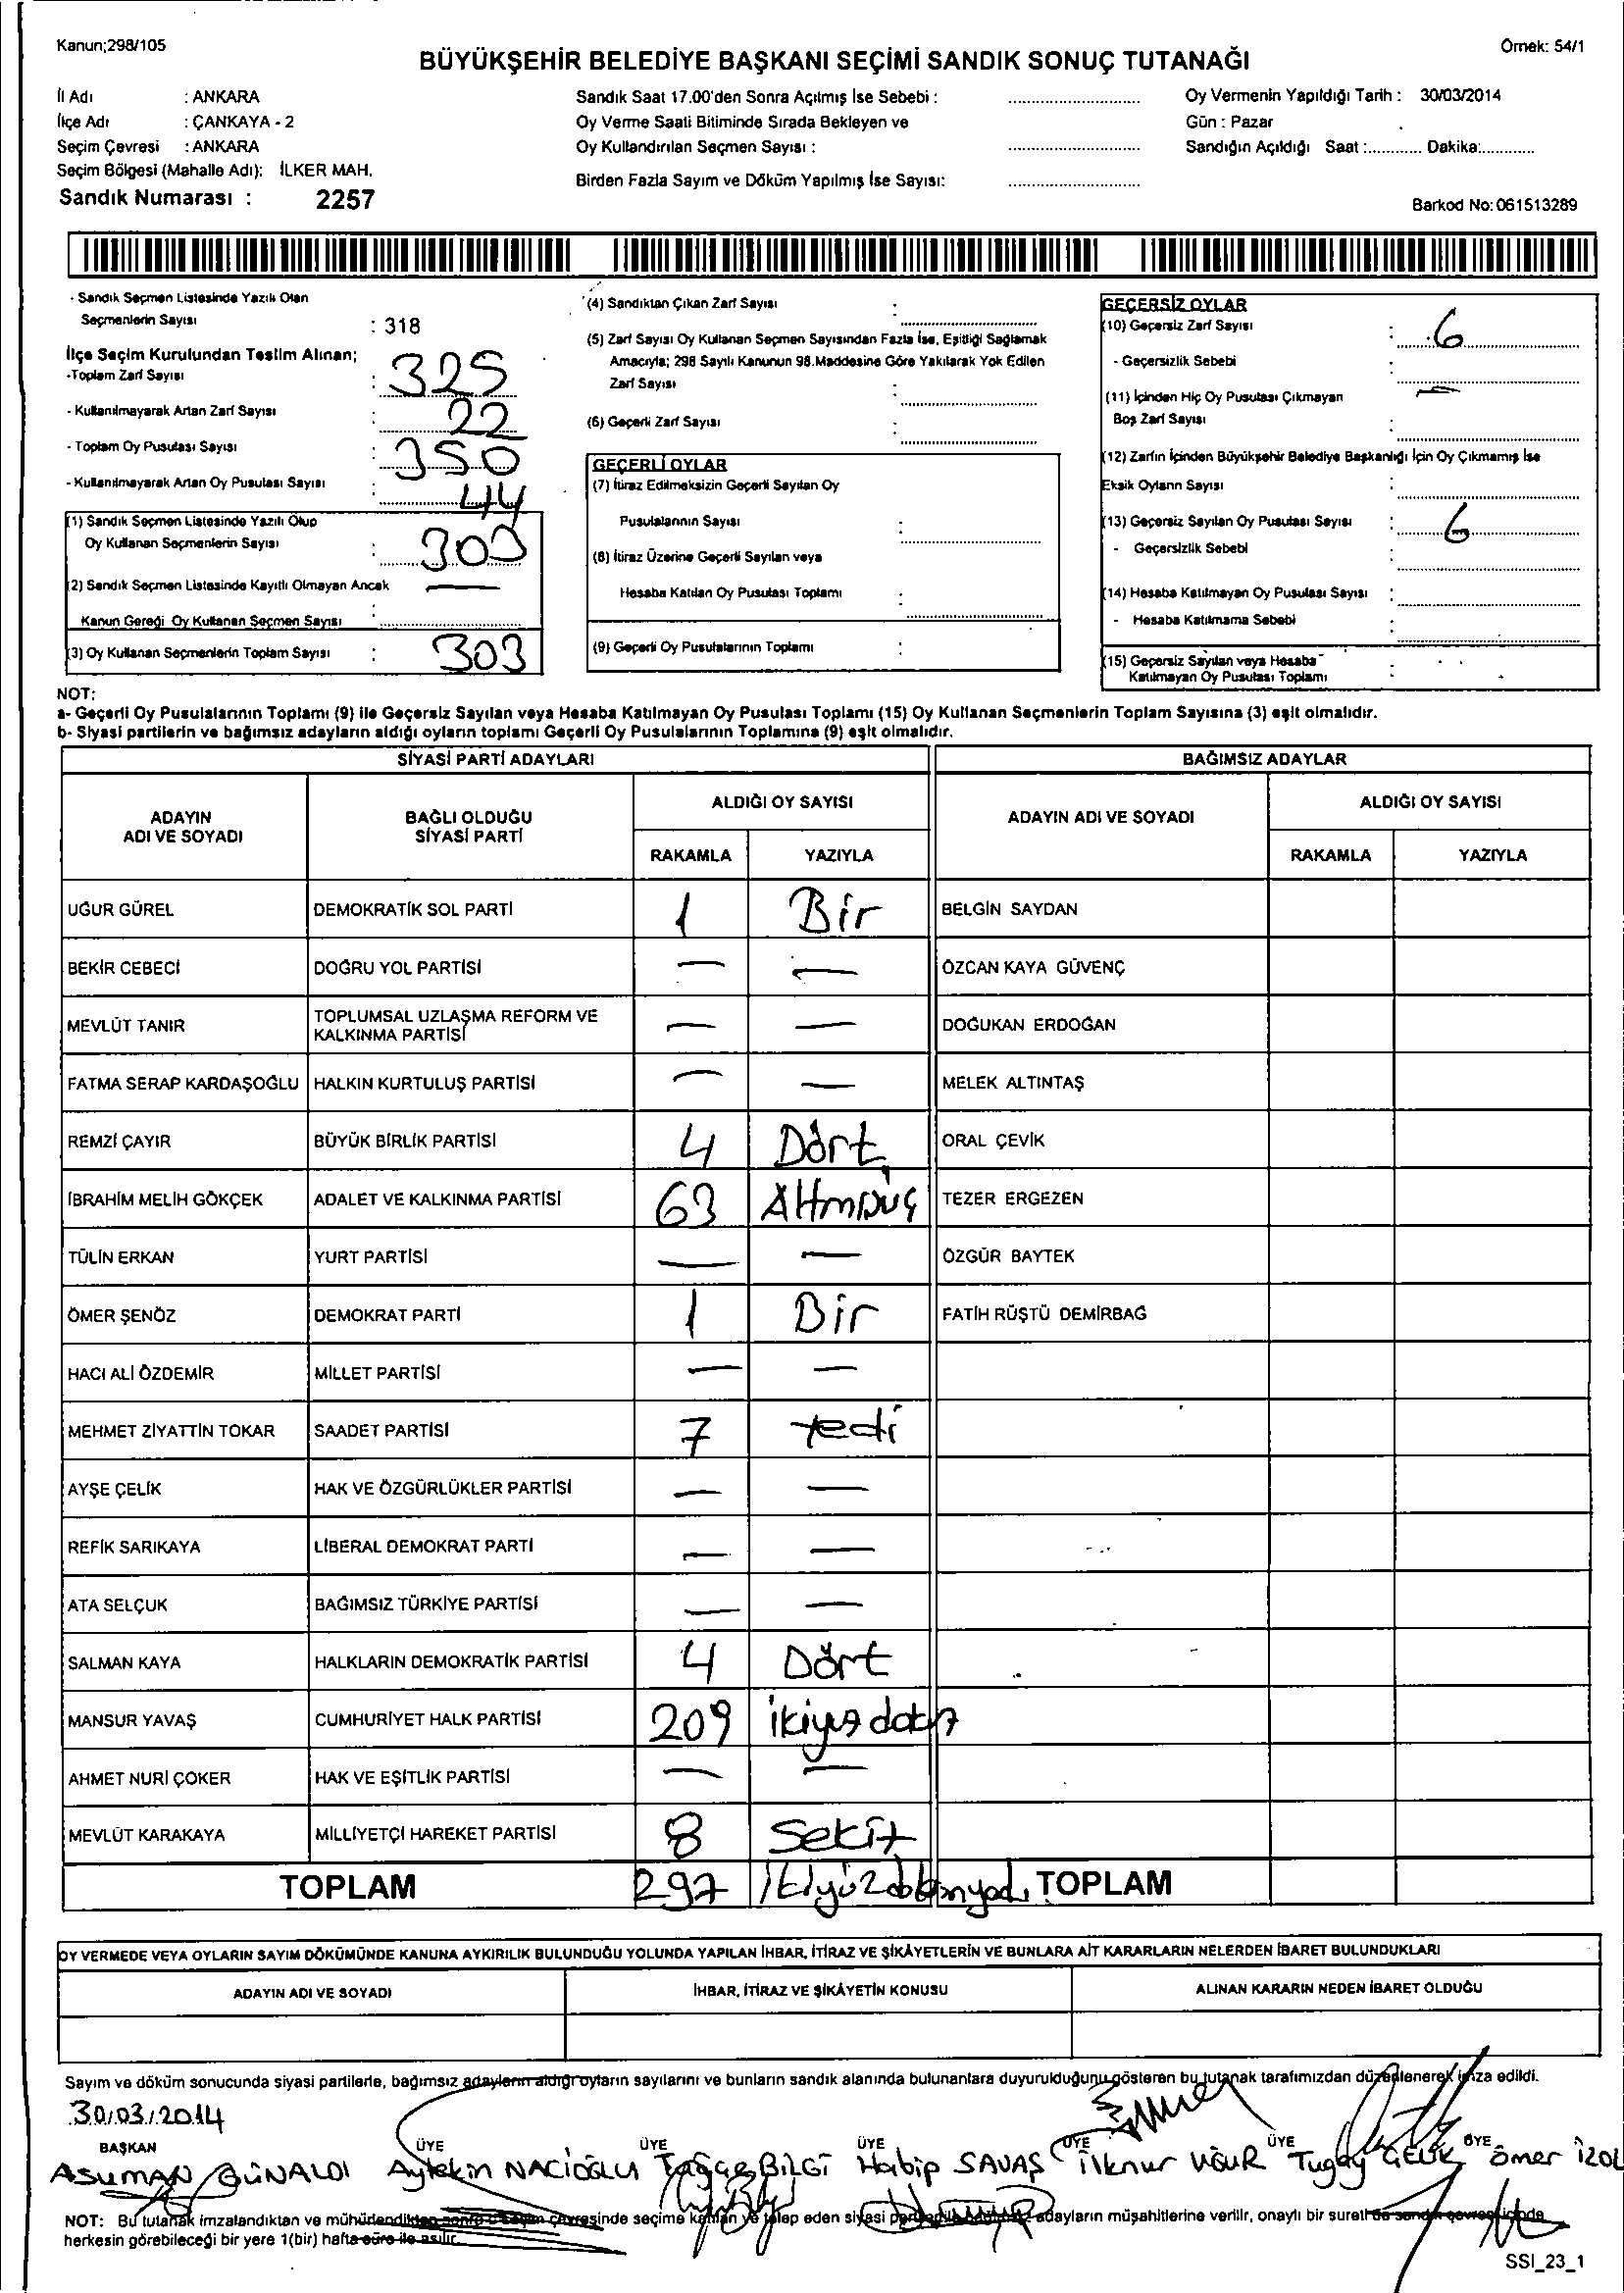 Kanun;298/105
Örnek: 54/1
BÜYÜKŞEHİR BELEDİYE BAŞKANI SEÇİMİ SANDIK SONUÇ TUTANAĞI
İl Adı : ANKARA
İlçe Adı : ÇANKAYA - 2
Seçim Çevresi : ANKARA
Seçim Bölgesi (Mahalle Adı): İLKER MAH.
Sandık Numarası : 2257
Sandık Saat 17.00'den Sonra Açılmış İse Sebebi :
Oy Verme Saati Bitiminde Sırada Bekleyen ve
Oy Kullandırılan Seçmen Sayısı :
Birden Fazla Sayım ve Döküm Yapılmış İse Sayısı:
Oy Vermenin Yapıldığı Tarih : 30/03/2014
Gün : Pazar
Sandığın Açıldığı Saat :............ Dakika:............
Barkod No: 061513289
- Sandık Seçmen Listesinde Yazılı Olan
Seçmenlerin Sayısı : 318
İlçe Seçim Kurulundan Teslim Alınan;
-Toplam Zarf Sayısı : 325
- Kullanılmayarak Artan Zarf Sayısı : 22
- Toplam Oy Pusulası Sayısı : 350
- Kullanılmayarak Artan Oy Pusulası Sayısı : 44
(1) Sandık Seçmen Listesinde Yazılı Olup
Oy Kullanan Seçmenlerin Sayısı : 303
(2) Sandık Seçmen Listesinde Kayıtlı Olmayan Ancak —
Kanun Gereği Oy Kullanan Seçmen Sayısı :
(3) Oy Kullanan Seçmenlerin Toplam Sayısı : 303
(4) Sandıktan Çıkan Zarf Sayısı :
(5) Zarf Sayısı Oy Kullanan Seçmen Sayısından Fazla İse, Eşitliği Sağlamak
Amacıyla; 298 Sayılı Kanunun 98.Maddesine Göre Yakılarak Yok Edilen
Zarf Sayısı :
(6) Geçerli Zarf Sayısı :
GEÇERLİ OYLAR
(7) İtiraz Edilmeksizin Geçerli Sayılan Oy
Pusulalarının Sayısı :
(8) İtiraz Üzerine Geçerli Sayılan veya
Hesaba Katılan Oy Pusulası Toplamı :
(9) Geçerli Oy Pusulalarının Toplamı :
GEÇERSİZ OYLAR
(10) Geçersiz Zarf Sayısı : 6
- Geçersizlik Sebebi :
(11) İçinden Hiç Oy Pusulası Çıkmayan —
Boş Zarf Sayısı :
(12) Zarfın İçinden Büyükşehir Belediye Başkanlığı İçin Oy Çıkmamış İse
Eksik Oyların Sayısı :
(13) Geçersiz Sayılan Oy Pusulası Sayısı : 6
- Geçersizlik Sebebi :
(14) Hesaba Katılmayan Oy Pusulası Sayısı :
- Hesaba Katılmama Sebebi :
(15) Geçersiz Sayılan veya Hesaba
Katılmayan Oy Pusulası Toplamı :
NOT:
a- Geçerli Oy Pusulalarının Toplamı (9) ile Geçersiz Sayılan veya Hesaba Katılmayan Oy Pusulası Toplamı (15) Oy Kullanan Seçmenlerin Toplam Sayısına (3) eşit olmalıdır.
b- Siyasi partilerin ve bağımsız adayların aldığı oyların toplamı Geçerli Oy Pusulalarının Toplamına (9) eşit olmalıdır.
SİYASİ PARTİ ADAYLARI BAĞIMSIZ ADAYLAR
ADAYIN ADI VE SOYADI BAĞLI OLDUĞU SİYASİ PARTİ ALDIĞI OY SAYISI ADAYIN ADI VE SOYADI ALDIĞI OY SAYISI
RAKAMLA YAZIYLA RAKAMLA YAZIYLA
UĞUR GÜREL DEMOKRATİK SOL PARTİ 1 Bir BELGİN SAYDAN
BEKİR CEBECİ DOĞRU YOL PARTİSİ — — ÖZCAN KAYA GÜVENÇ
MEVLÜT TANIR TOPLUMSAL UZLAŞMA REFORM VE KALKINMA PARTİSİ — — DOĞUKAN ERDOĞAN
FATMA SERAP KARDAŞOĞLU HALKIN KURTULUŞ PARTİSİ — — MELEK ALTINTAŞ
REMZİ ÇAYIR BÜYÜK BİRLİK PARTİSİ 4 Dört ORAL ÇEVİK
İBRAHİM MELİH GÖKÇEK ADALET VE KALKINMA PARTİSİ 63 Altmışüç TEZER ERGEZEN
TÜLİN ERKAN YURT PARTİSİ — — ÖZGÜR BAYTEK
ÖMER ŞENÖZ DEMOKRAT PARTİ 1 Bir FATİH RÜŞTÜ DEMİRBAĞ
HACI ALİ ÖZDEMİR MİLLET PARTİSİ — —
MEHMET ZİYATTİN TOKAR SAADET PARTİSİ 7 Yedi
AYŞE ÇELİK HAK VE ÖZGÜRLÜKLER PARTİSİ — —
REFİK SARIKAYA LİBERAL DEMOKRAT PARTİ — —
ATA SELÇUK BAĞIMSIZ TÜRKİYE PARTİSİ — —
SALMAN KAYA HALKLARIN DEMOKRATİK PARTİSİ 4 Dört
MANSUR YAVAŞ CUMHURİYET HALK PARTİSİ 209
AHMET NURİ ÇOKER HAK VE EŞİTLİK PARTİSİ — —
MEVLÜT KARAKAYA MİLLİYETÇİ HAREKET PARTİSİ 8 Sekiz
TOPLAM 297 TOPLAM
OY VERMEDE VEYA OYLARIN SAYIM DÖKÜMÜNDE KANUNA AYKIRILIK BULUNDUĞU YOLUNDA YAPILAN İHBAR, İTİRAZ VE ŞİKÂYETLERİN VE BUNLARA AİT KARARLARIN NELERDEN İBARET BULUNDUKLARI
ADAYIN ADI VE SOYADI İHBAR, İTİRAZ VE ŞİKÂYETİN KONUSU ALINAN KARARIN NEDEN İBARET OLDUĞU
Sayım ve döküm sonucunda siyasi partilerle, bağımsız adayların aldığı oyların sayılarını ve bunların sandık alanında bulunanlara duyurulduğunu gösteren bu tutanak tarafımızdan düzenlenerek imza edildi.
30/03/2014
BAŞKAN ÜYE ÜYE ÜYE ÜYE ÜYE ÜYE
ASUMAN GÜNALDI Aytekin NACİOĞLU BİLGİ Habip SAVAŞ İlknur UĞUR Tugay ÇELİK Ömer İZOL
NOT: Bu tutanak imzalandıktan ve mühürlendikten sonra o seçim çevresinde seçime katılan ve talep eden siyasi partilerle bağımsız adayların müşahitlerine verilir, onaylı bir sureti de sandık çevresinde
herkesin görebileceği bir yere 1(bir) hafta süre ile asılır.
SSI_23_1